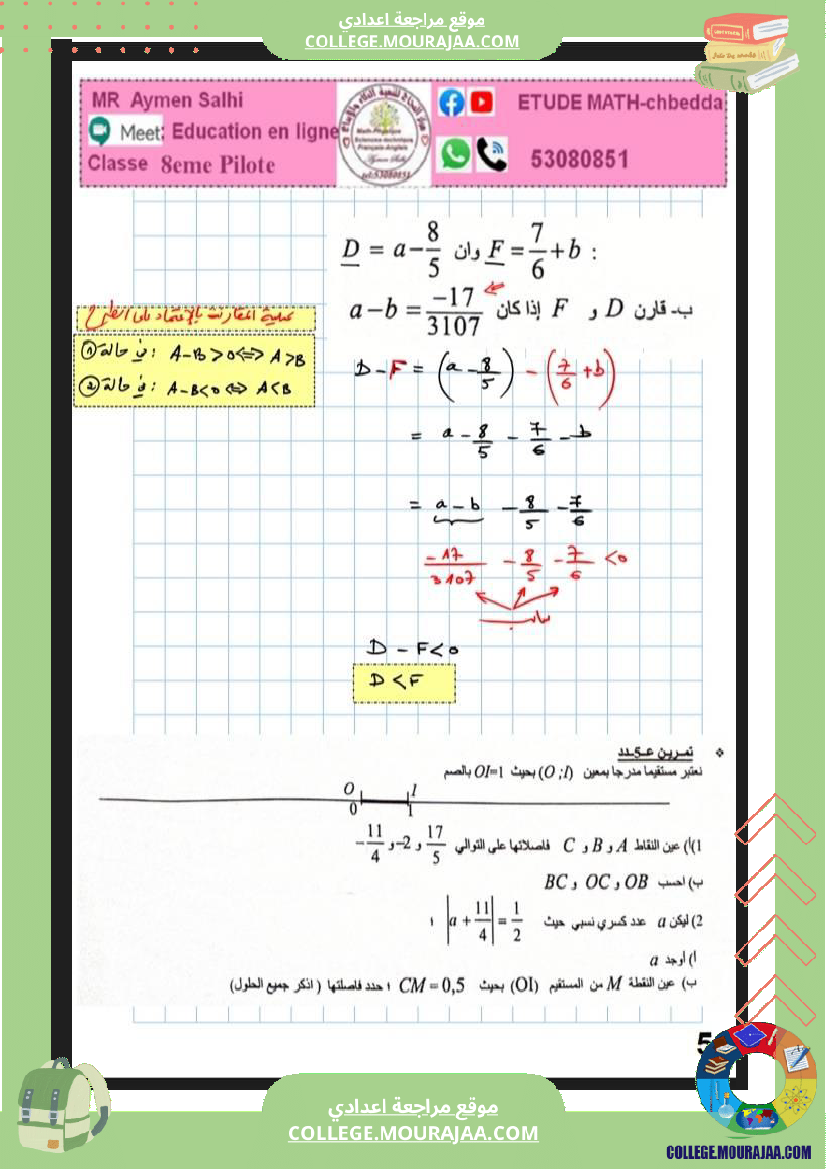 موقع مراجعة اعدادي
COLLEGE.MOURAJAA.COM
MR Aymen Salhi
Meet: Education en ligne
Classe 8eme Pilote
ETUDE MATH-chbedda
53080851
D = a - 8/5 وان F = 7/6 + b :
ب- قارن D و F إذا كان a - b = -17/3107
عملية المقارنة بالإعتماد على الطرح
① في حالة : A-B>0 ⇔ A>B
② في حالة : A-B<0 ⇔ A<B
D - F = (a - 8/5) - (7/6 + b)
= a - 8/5 - 7/6 - b
= a - b - 8/5 - 7/6
-17/3107 - 8/5 - 7/6 < 0
سالب
D - F < 0
D < F
❖ تمرين عـدد
نعتبر مستقيما مدرجا بمعين (O ;I) بحيث OI=1 بالصم
O I
0 1
1)أ) عين النقاط A و B و C فاصلاتها على التوالي 17/5 و 2- و -11/4
ب) احسب OB و OC و BC
2) ليكن a عدد كسري نسبي حيث |a + 11/4| = 1/2 ؛
أ) أوجد a
ب) عين النقطة M من المستقيم (OI) بحيث CM = 0,5 ؛ حدد فاصلتها ( اذكر جميع الحلول)
5
موقع مراجعة اعدادي
COLLEGE.MOURAJAA.COM
COLLEGE.MOURAJAA.COM